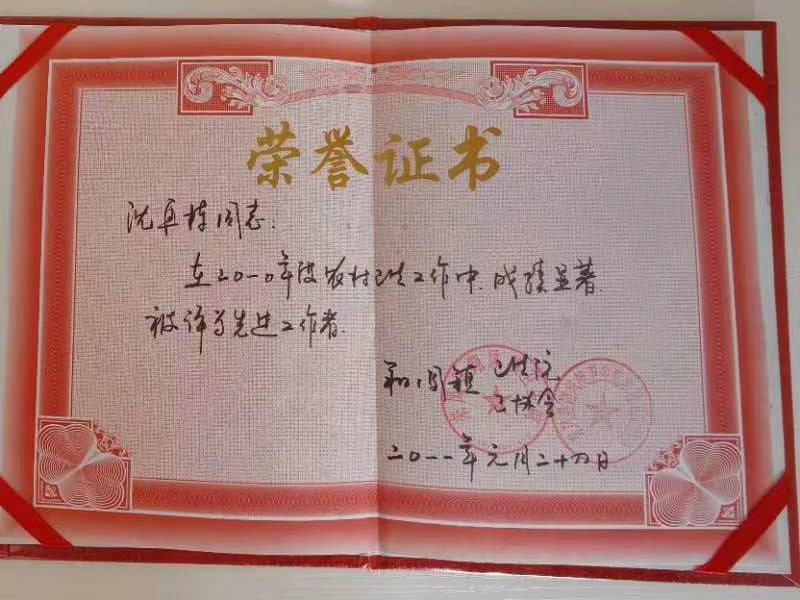 荣誉证书
沈卓栋同志:
在二0一0年度农村卫生工作中,成绩显著,
被评为先进工作者.
和岗镇 卫生院
卫协会
二0一一年元月二十四日